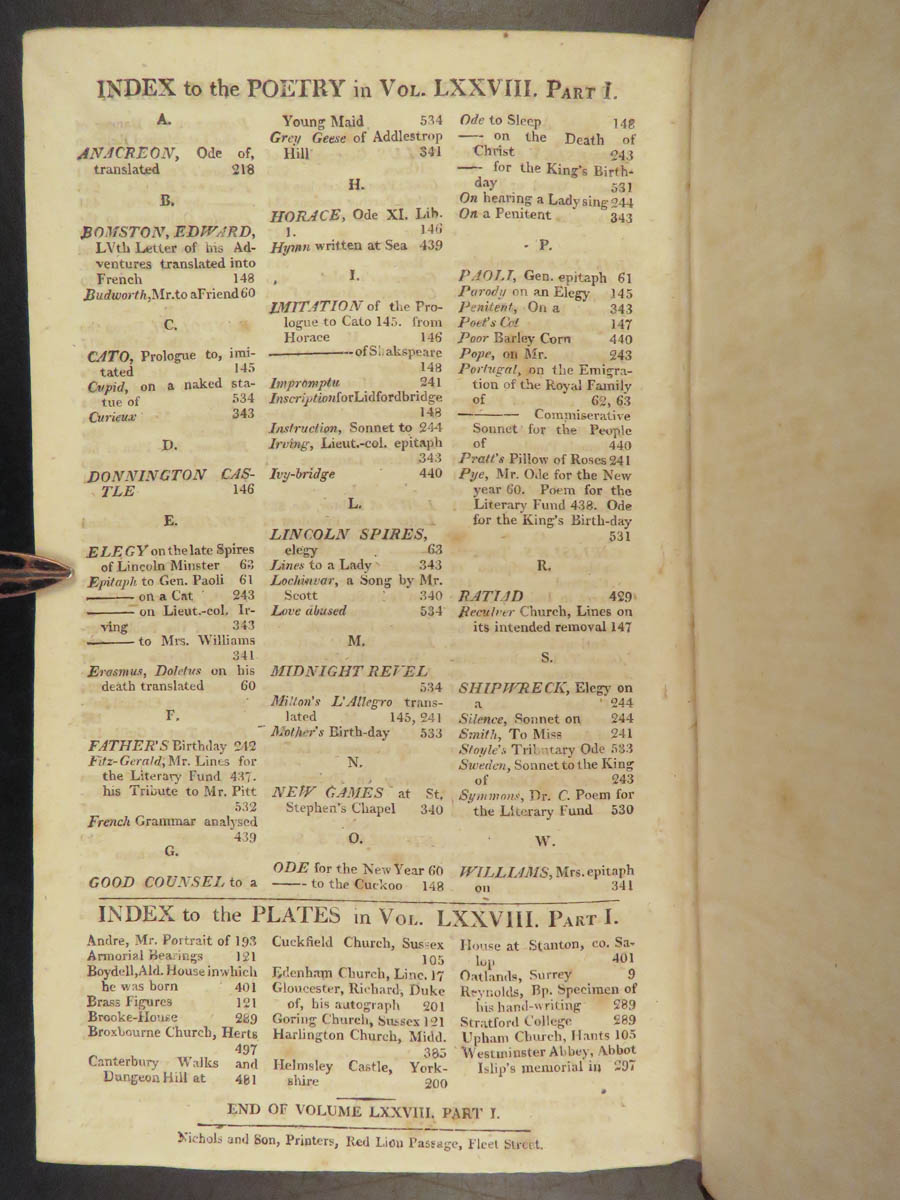 INDEX to the POETRY in VOL. LXXVIII. PART I.
A.
ANACREON, Ode of,
translated 218
B.
BOMSTON, EDWARD,
LVth Letter of his Ad-
ventures translated into
French 148
Budworth, Mr. to a Friend 60
C.
CATO, Prologue to, imi-
tated 145
Cupid, on a naked sta-
tue of 534
Curieux 343
D.
DONNINGTON CAS-
TLE 146
E.
ELEGY on the late Spires
of Lincoln Minster 63
Epitaph to Gen. Paoli 61
—— on a Cat 243
—— on Lieut.-col. Ir-
ving 343
—— to Mrs. Williams
341
Erasmus, Doletus on his
death translated 60
F.
FATHER'S Birthday 242
Fitz-Gerald, Mr. Lines for
the Literary Fund 437.
his Tribute to Mr. Pitt
532
French Grammar analysed
439
G.
GOOD COUNSEL to a
Young Maid 534
Grey Geese of Addlestrop
Hill 341
H.
HORACE, Ode XI. Lib.
1. 146
Hymn written at Sea 439
I.
IMITATION of the Pro-
logue to Cato 145. from
Horace 146
—— of Shakspeare
148
Impromptu 241
Inscription for Lidfordbridge
148
Instruction, Sonnet to 244
Irving, Lieut.-col. epitaph
343
Ivy-bridge 440
L.
LINCOLN SPIRES,
elegy 63
Lines to a Lady 63
Lochinvar, a Song by Mr.
Scott 340
Love abused 534
M.
MIDNIGHT REVEL
534
Milton's L'Allegro trans-
lated 145, 241
Mother's Birth-day 533
N.
NEW GAMES at St.
Stephen's Chapel 340
O.
ODE for the New Year 60
—— to the Cuckoo 148
Ode to Sleep 148
—— on the Death of
Christ 243
—— for the King's Birth-
day 531
On hearing a Lady sing 244
On a Penitent 343
P.
PAOLI, Gen. epitaph 61
Parody on an Elegy 145
Penitent, On a 343
Poet's Cot 147
Poor Barley Corn 440
Pope, on Mr. 243
Portugal, on the Emigra-
tion of the Royal Family
of 62, 63
—— Commiserative
Sonnet for the People
of 440
Pratt's Pillow of Roses 241
Pye, Mr. Ode for the New
year 60. Poem for the
Literary Fund 438. Ode
for the King's Birth-day
531
R.
RATIAD 429
Reculver Church, Lines on
its intended removal 147
S.
SHIPWRECK, Elegy on
a 244
Silence, Sonnet on 244
Smith, To Miss 241
Stoyle's Tributary Ode 533
Sweden, Sonnet to the King
of 243
Symmons, Dr. C. Poem for
the Literary Fund 530
W.
WILLIAMS, Mrs. epitaph
on 341
INDEX to the PLATES in VOL. LXXVIII. PART I.
Andre, Mr. Portrait of 193
Armorial Bearings 121
Boydell, Ald. House in which
he was born 401
Brass Figures 121
Brooke-House 289
Broxbourne Church, Herts
497
Canterbury Walks and
Dungeon Hill at 481
Cuckfield Church, Sussex
105
Edenham Church, Linc. 17
Gloucester, Richard, Duke
of, his autograph 201
Goring Church, Sussex 121
Harlington Church, Midd.
385
Helmsley Castle, York-
shire 200
House at Stanton, co. Sa-
lop 401
Oatlands, Surrey 9
Reynolds, Bp. Specimen of
his hand-writing 289
Stratford College 289
Upham Church, Hants 105
Westminster Abbey, Abbot
Islip's memorial in 297
END OF VOLUME LXXVIII. PART I.
Nichols and Son, Printers, Red Lion Passage, Fleet Street.